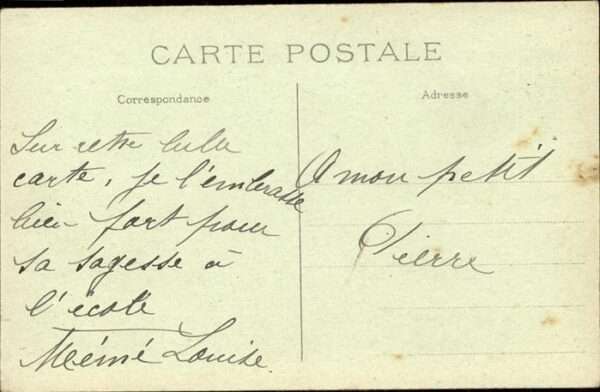 CARTE POSTALE
Correspondance
Adresse
Sur cette belle
carte, je t'embrasse
bien fort pour
ta sagesse à
l'école
Mémé Louise
A mon petit
Pierre